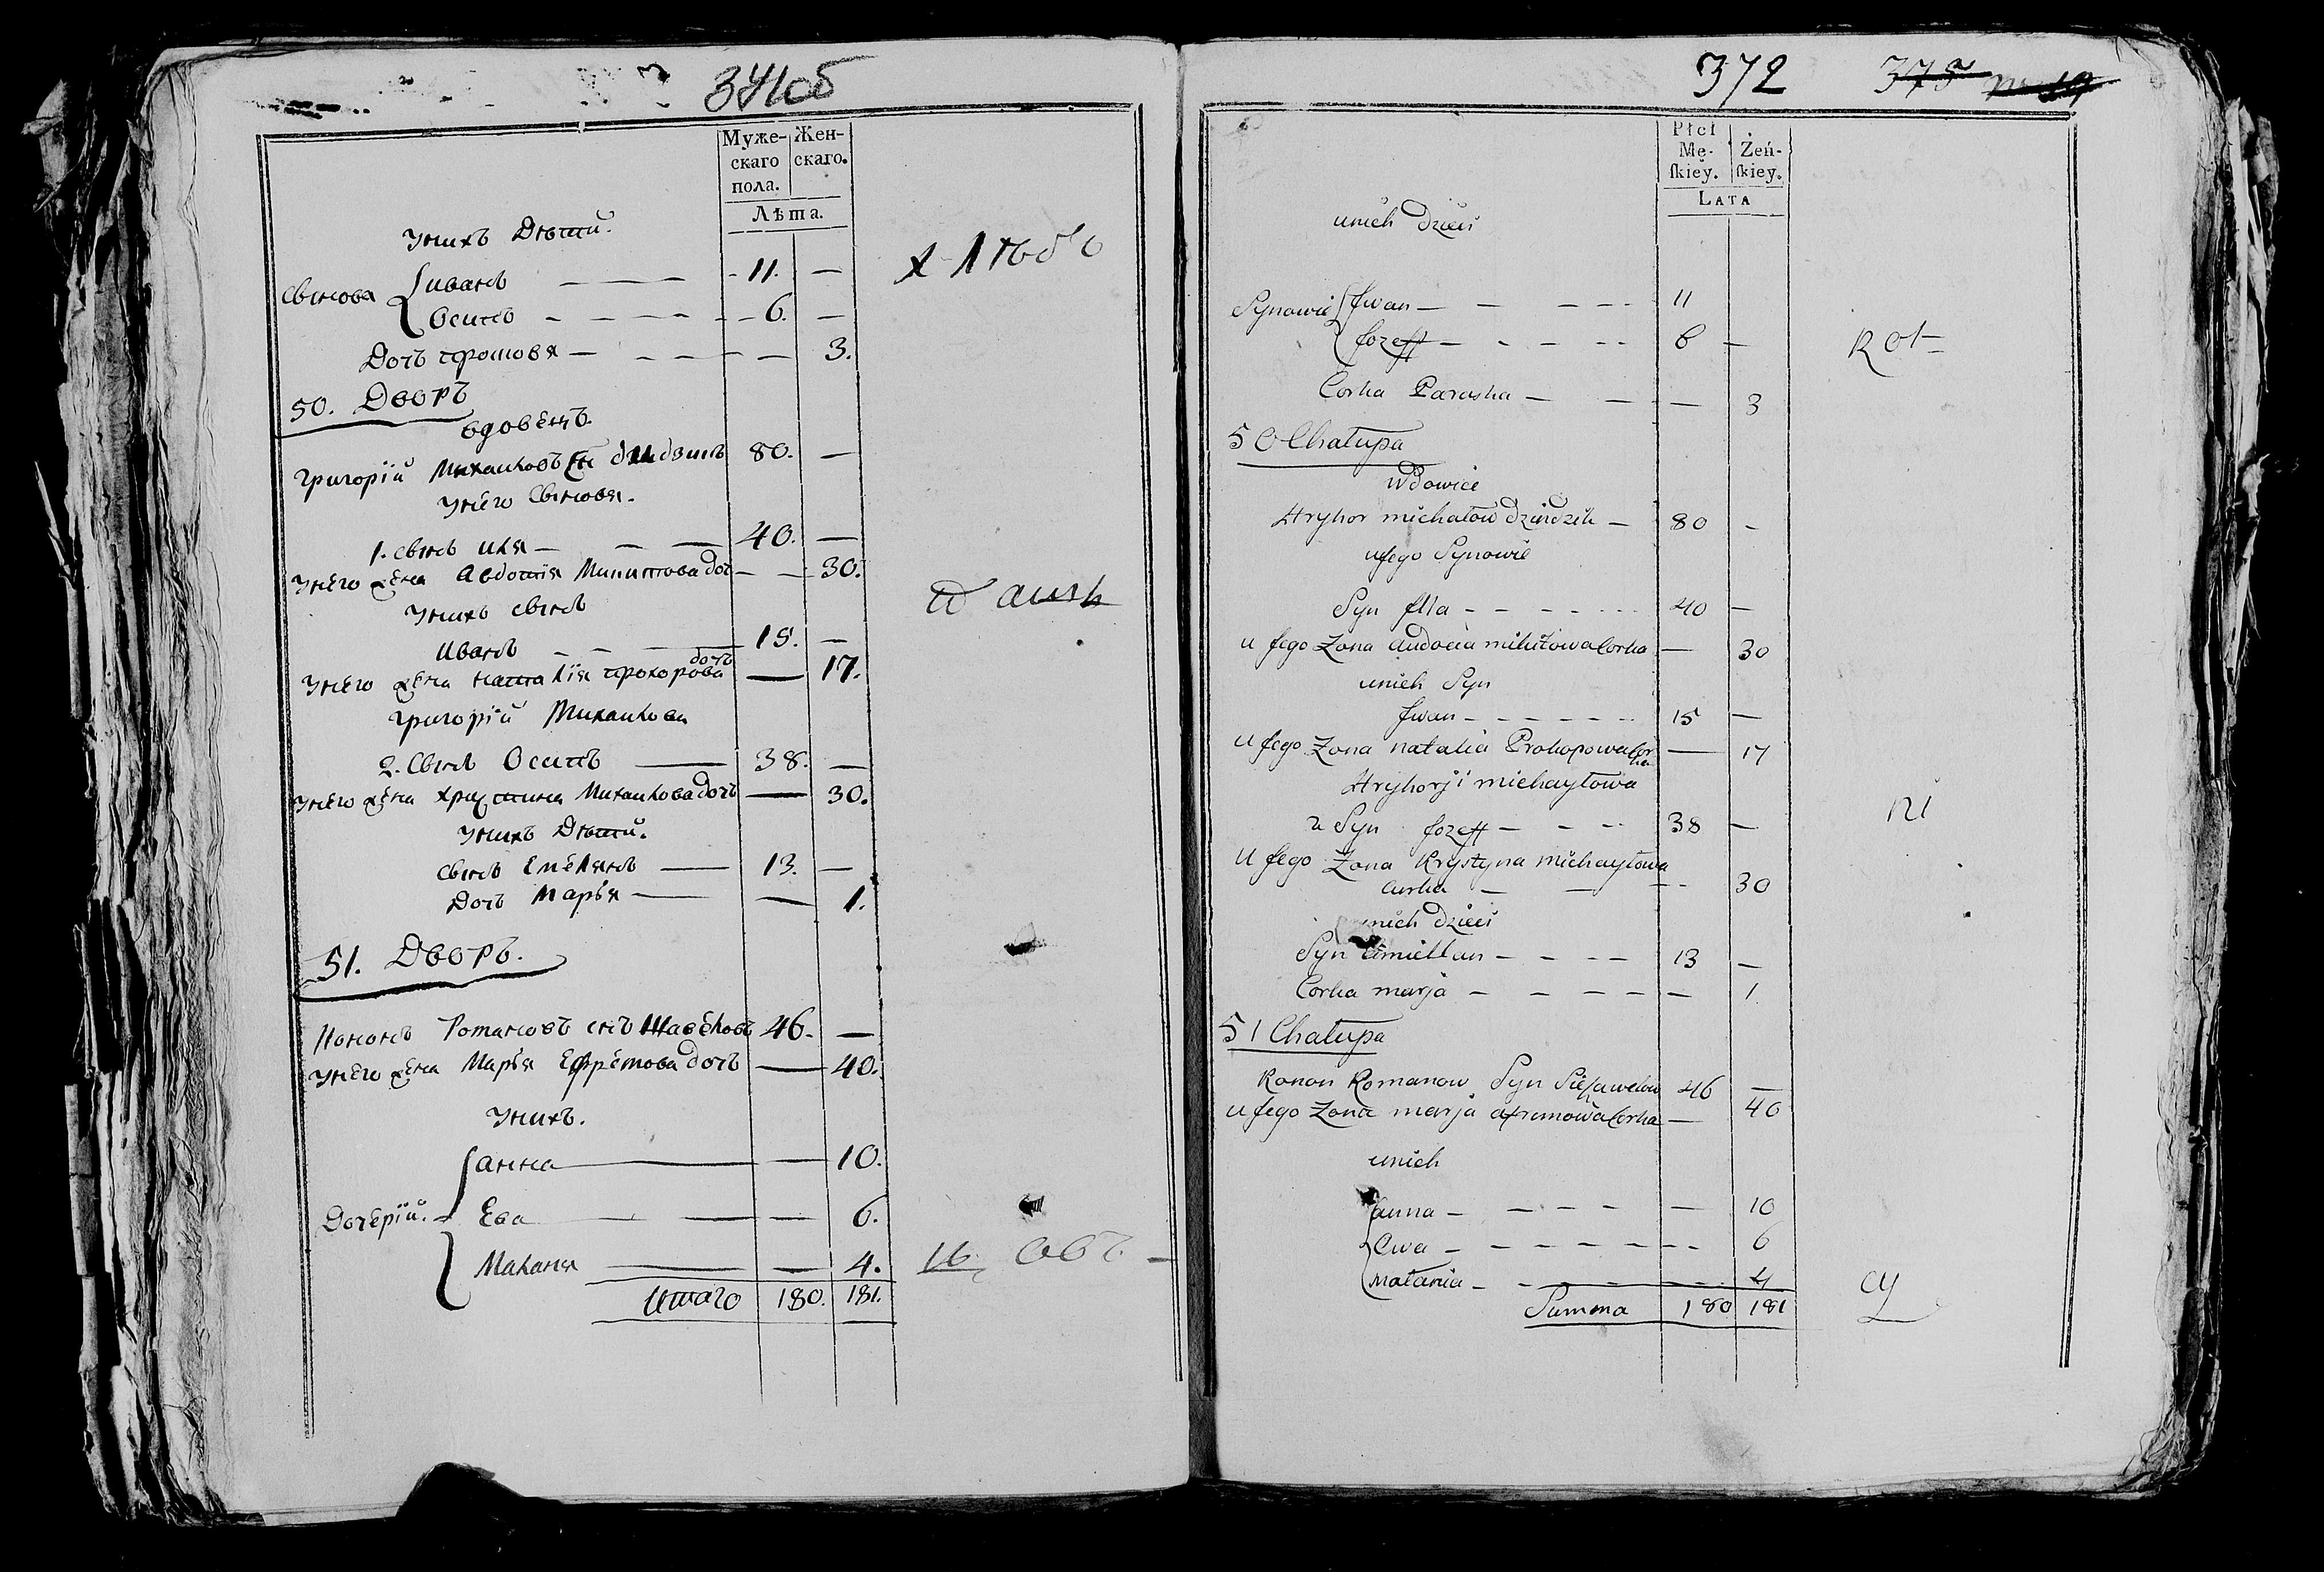 341об
Муже-скаго пола. Жен-скаго.
Лѣта.
У нихъ Дѣти.
Сынова Иванъ — 11. —
Осипъ — 6. —
Дочь — 3.
50. Дворъ
вдовецъ.
Григорій Михайловъ 80. —
У него Сыновя.
1. Сынъ Илья — 40. —
У него жена Авдотія Микитова дочь — 30.
У нихъ Сынъ
Иванъ — 15. —
У него жена Наталія Прохорова дочь — 17.
Григорій Михайлова
2. Сынъ Осипъ — 38. —
У него жена Христина Михайлова дочь — 30.
У нихъ Дѣти.
Сынъ Емельянъ — 13. —
Дочь Марья — 1.
51. Дворъ.
Кононъ Романовъ снъ 46. —
У него жена Марья Ефремова дочь — 40.
У нихъ.
Анна — 10.
Дочерій. Ева — 6.
Маланя — 4.
Итаго 180. 181.
372
Płci Mę-skiey. Żeń-skiey.
LATA
u nich Dzieci
Synowie Jwan — 11
Jozeff — 6 —
Corka Paraska — 3
50 Chałupa
Wdowiec
Hryhor Michałow Dzindzik — 80 —
u Jego Synowie
Syn Jlia — 40 —
u Jego Zona Audocia Mikitowa Corka — 30
u nich Syn
Jwan — 15 —
u Jego Zona Natalia Prokopowa Corka — 17
Hryhorji Michayłowa
2 Syn Jozeff — 38 —
u Jego Zona Krystyna Michayłowa
Curka — 30
u nich Dzieci
Syn — 13 —
Corka Marja — 1.
51 Chałupa
Konon Romanow Syn 46 —
u Jego Zona Marja Corka — 40
u nich
Anna — 10
Ewa — 6
Małania — 4
Summa 180 181